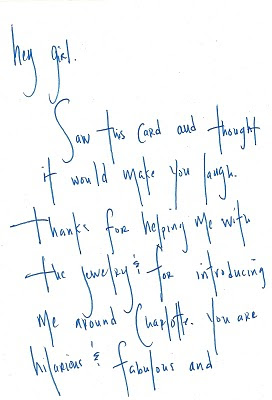 hey girl.
Saw this card and thought
it would make you laugh.
Thanks for helping me with
the jewelry & for introducing
me around Charlotte. You are
hilarious & fabulous and